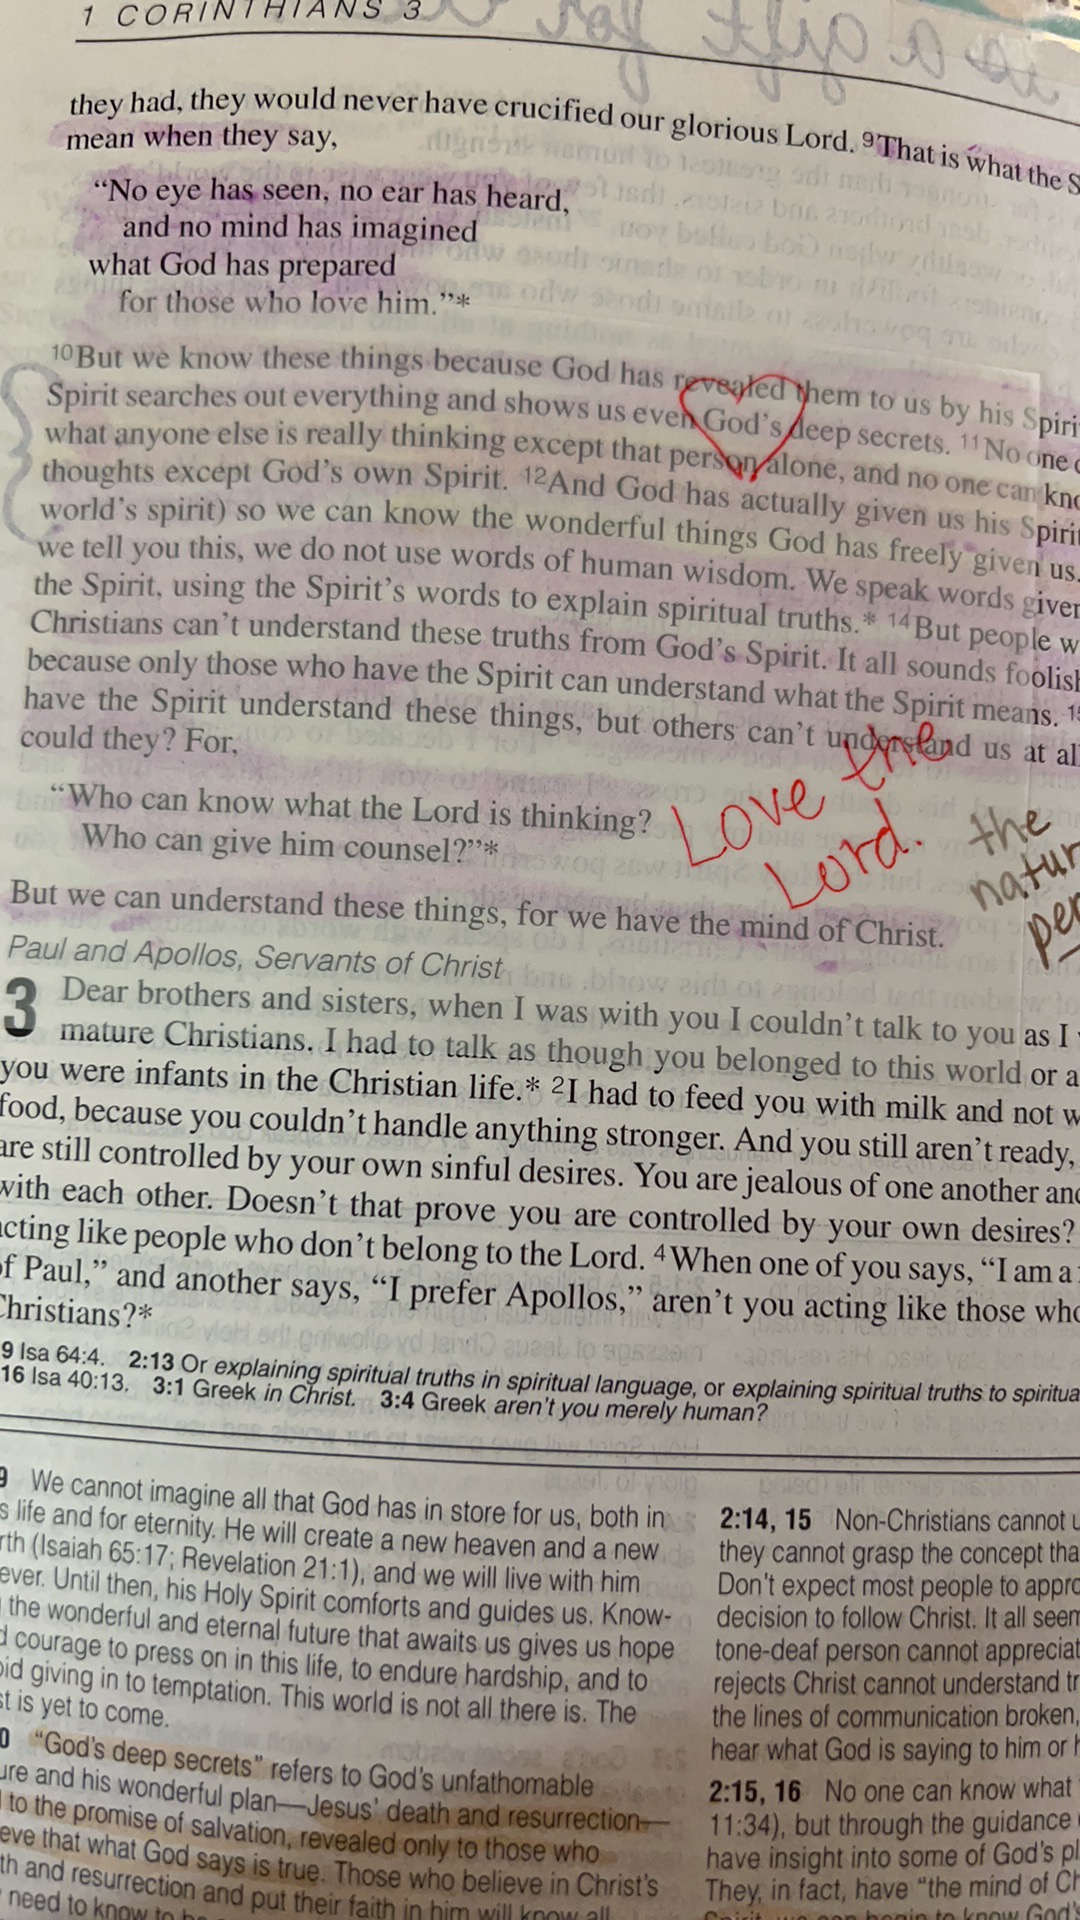 1 CORINTHIANS 3
is a gift for
they had, they would never have crucified our glorious Lord. ⁹That is what the S
mean when they say,
“No eye has seen, no ear has heard,
and no mind has imagined
what God has prepared
for those who love him.”*
¹⁰But we know these things because God has revealed them to us by his Spiri
Spirit searches out everything and shows us even God’s deep secrets. ¹¹No one c
what anyone else is really thinking except that person alone, and no one can kno
thoughts except God’s own Spirit. ¹²And God has actually given us his Spirit
world’s spirit) so we can know the wonderful things God has freely given us.
we tell you this, we do not use words of human wisdom. We speak words given
the Spirit, using the Spirit’s words to explain spiritual truths.* ¹⁴But people w
Christians can’t understand these truths from God’s Spirit. It all sounds foolish
because only those who have the Spirit can understand what the Spirit means. ¹⁵
have the Spirit understand these things, but others can’t understand us at al
could they? For,
“Who can know what the Lord is thinking?
Who can give him counsel?”*
Love the
Lord.
the
natur
per
But we can understand these things, for we have the mind of Christ.
Paul and Apollos, Servants of Christ
3 Dear brothers and sisters, when I was with you I couldn’t talk to you as I
mature Christians. I had to talk as though you belonged to this world or a
you were infants in the Christian life.* ²I had to feed you with milk and not w
food, because you couldn’t handle anything stronger. And you still aren’t ready,
are still controlled by your own sinful desires. You are jealous of one another and
with each other. Doesn’t that prove you are controlled by your own desires?
acting like people who don’t belong to the Lord. ⁴When one of you says, “I am a
of Paul,” and another says, “I prefer Apollos,” aren’t you acting like those who
Christians?*
9 Isa 64:4. 2:13 Or explaining spiritual truths in spiritual language, or explaining spiritual truths to spiritua
16 Isa 40:13. 3:1 Greek in Christ. 3:4 Greek aren’t you merely human?
9 We cannot imagine all that God has in store for us, both in
s life and for eternity. He will create a new heaven and a new
rth (Isaiah 65:17; Revelation 21:1), and we will live with him
ever. Until then, his Holy Spirit comforts and guides us. Know-
the wonderful and eternal future that awaits us gives us hope
d courage to press on in this life, to endure hardship, and to
oid giving in to temptation. This world is not all there is. The
st is yet to come.
0 “God’s deep secrets” refers to God’s unfathomable
ure and his wonderful plan—Jesus’ death and resurrection—
to the promise of salvation, revealed only to those who
eve that what God says is true. Those who believe in Christ’s
th and resurrection and put their faith in him will know all
need to know to
2:14, 15 Non-Christians cannot u
they cannot grasp the concept tha
Don’t expect most people to appro
decision to follow Christ. It all seem
tone-deaf person cannot appreciat
rejects Christ cannot understand tr
the lines of communication broken,
hear what God is saying to him or h
2:15, 16 No one can know what
11:34), but through the guidance
have insight into some of God’s pl
They, in fact, have “the mind of Ch
begin to know God’s